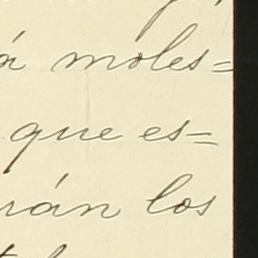 á moles=
que es=
rán los